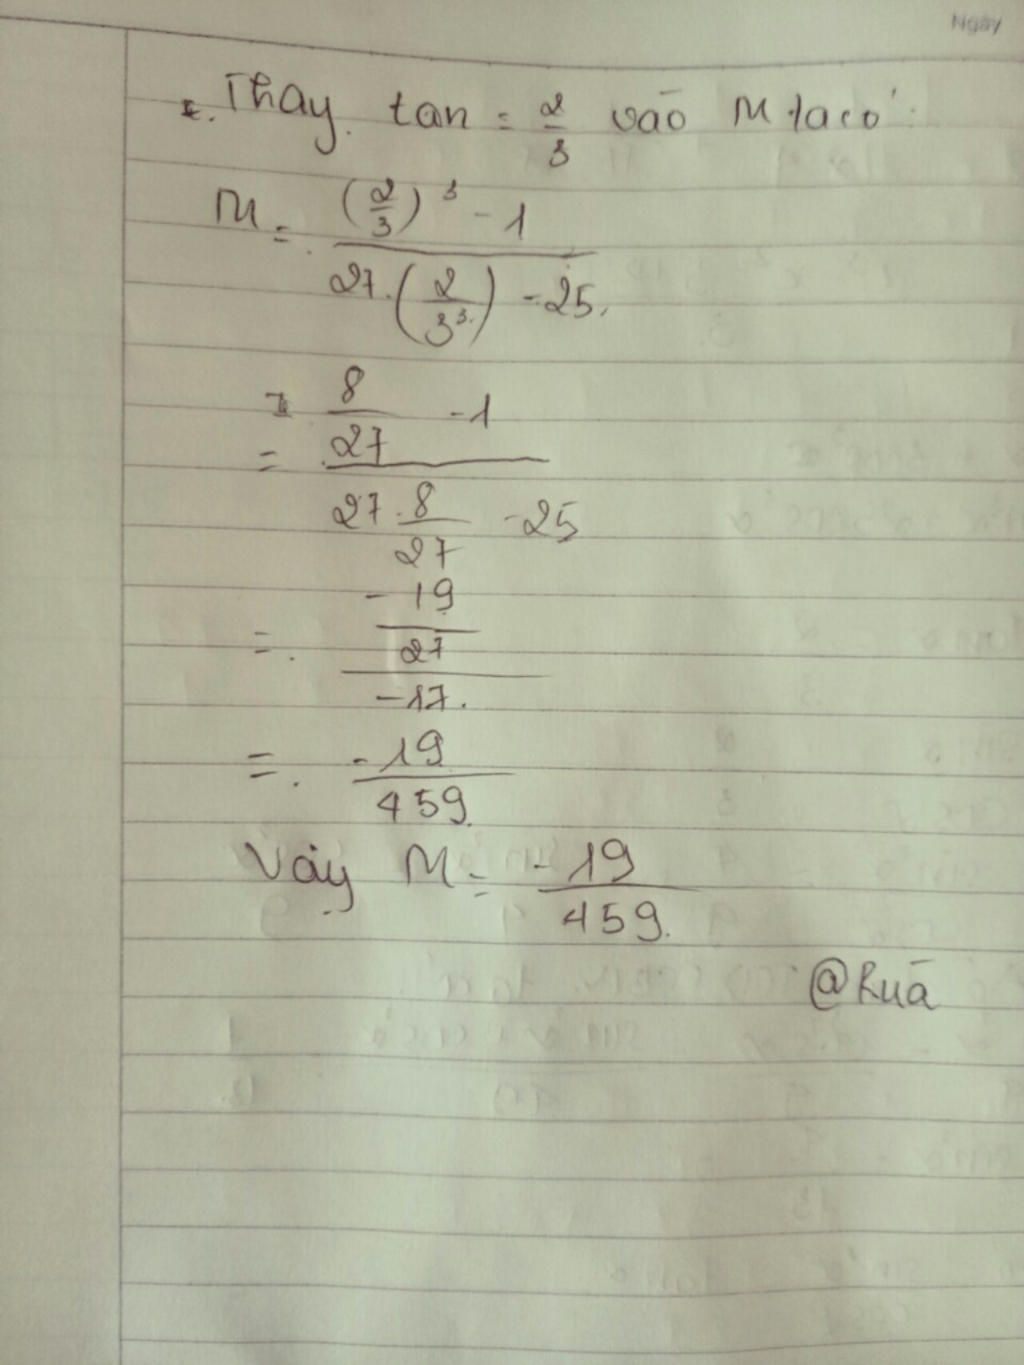 Ngày
. Thay tan = 2/3 vào M ta có :
M = ((2/3)^3 - 1) / (27.(2/3^3) - 25)
= (8/27 - 1) / (27.8/27 - 25)
= (-19/27) / (-17)
= -19/459
Vậy M = -19/459
@Ruà